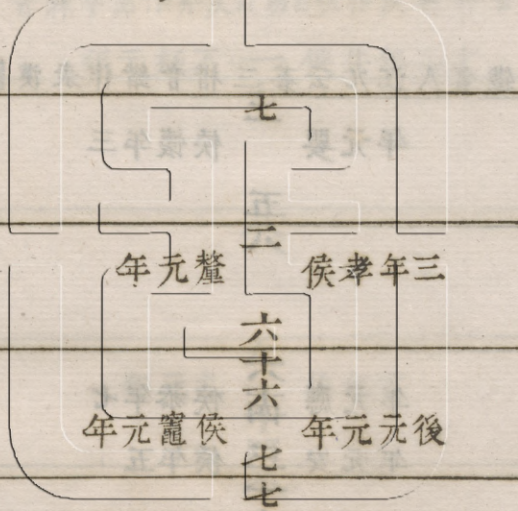 七
二
三年孝侯釐元年
六
十六
後元元年侯竈元年
七
七